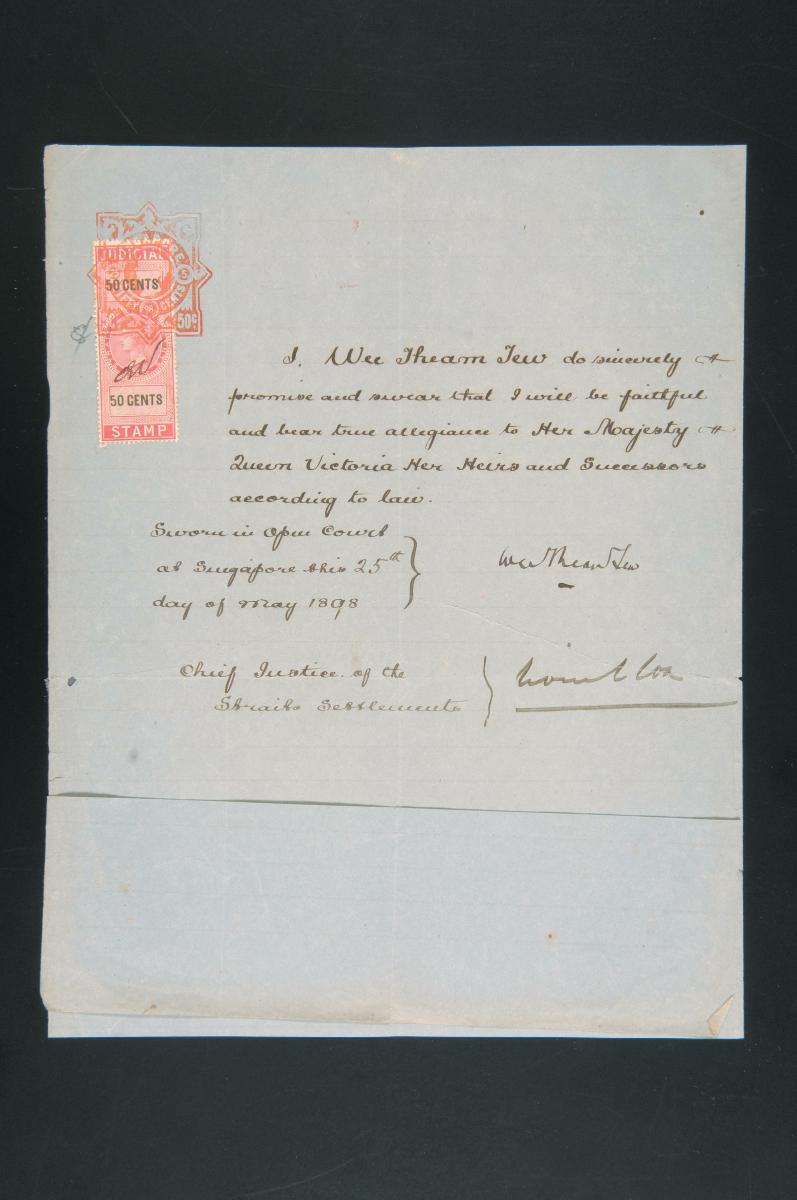 SINGAPORE
JUDICIAL
50 CENTS
CENTS
50c
50 CENTS
STAMP
I. Wee Theam Tew do sincerely
promise and swear that I will be faithful
and bear true allegiance to Her Majesty
Queen Victoria Her Heirs and Successors
according to law.
Sworn in Open Court
at Singapore this 25th
day of May 1898
Wee Theam Tew
Chief Justice of the
Straits Settlements
Lionel Cox